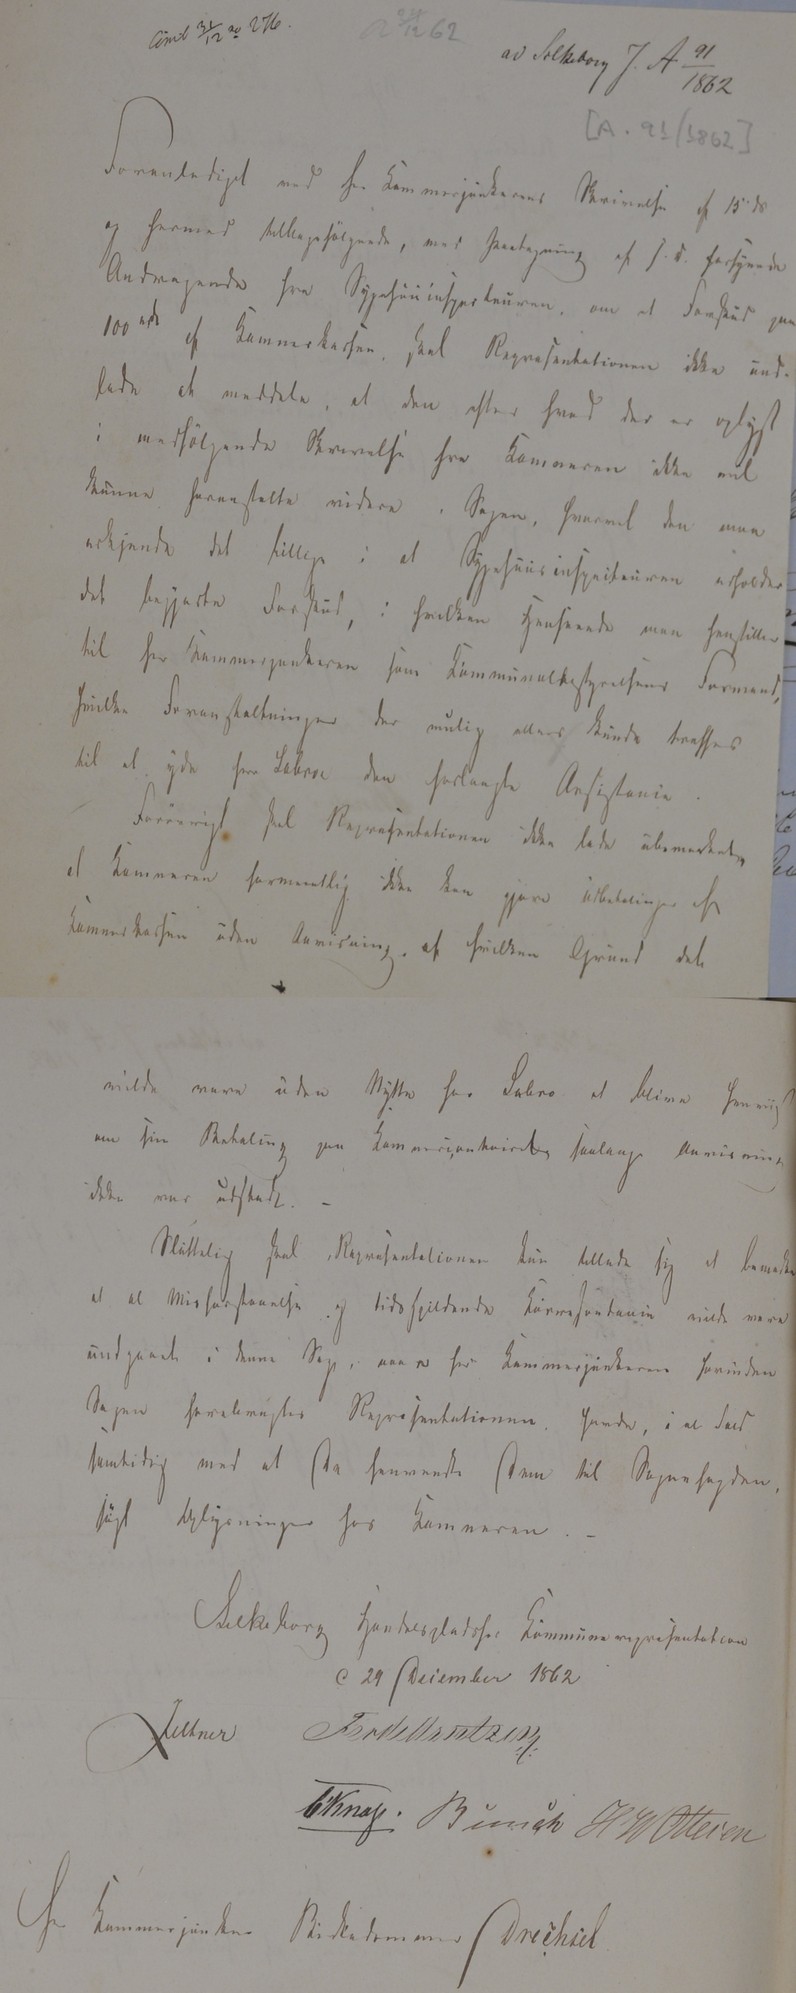 ad Silkeborg J. A 91/1862
[A. 91/1862]
Foranlediget ved Hr Kammerjunkerens Skrivelse af 15 ds
og hermed tilbagefølgende, med Paategning af s. D. forsynede
Andragende fra Sygehuusinspecteuren, om et Forskud paa
100 rd af Kæmnerkassen, skal Repræsentationen ikke und-
lade at meddele, at den efter hvad der er oplyst
i medfølgende Skrivelse fra Kæmneren ikke vel
kunne foranstalte videre i Sagen, hvorvel den maa
erkjende det billige i at Sygehuusinspecteuren erholder
det begjærte Forskud, i hvilken Henseende man henstiller
til Hr Kammerjunkeren som Kommunalbestyrelsens Formand,
hvilke Foranstaltninger der mulig ellers kunde træffes
til at yde Hr Labro den forlangte Assistance.
Forøvrigt skal Repræsentationen ikke lade ubemærket,
at Kæmneren formeentlig ikke kan gjøre Udbetalinger af
Kæmnerkassen uden Anvisning, af hvilken Grund det
vilde være uden Nytte for Labro at blive henviist
om sin Betaling paa Kæmnercontoiret, saalænge Anvisning
ikke var udstedt. –
Sluttelig skal Repræsentationen kun tillade sig at bemærke
at al Misforstaaelse og tidsspildende Correspondance vilde være
undgaaet i denne Sag, naar Hr Kammerjunkeren forinden
Sagen forelagdes Repræsentationen, havde, i al Fald
samtidig med at De henvendte Dem til Sognefogden,
søgt Oplysninger hos Kæmneren. –
Silkeborg Handelsplads's Kommunerepræsentation
d 29 December 1862
Zeltner
C Knap. Bunch H W Ottesen
Hr Kammerjunker Birkedommer Drechsel